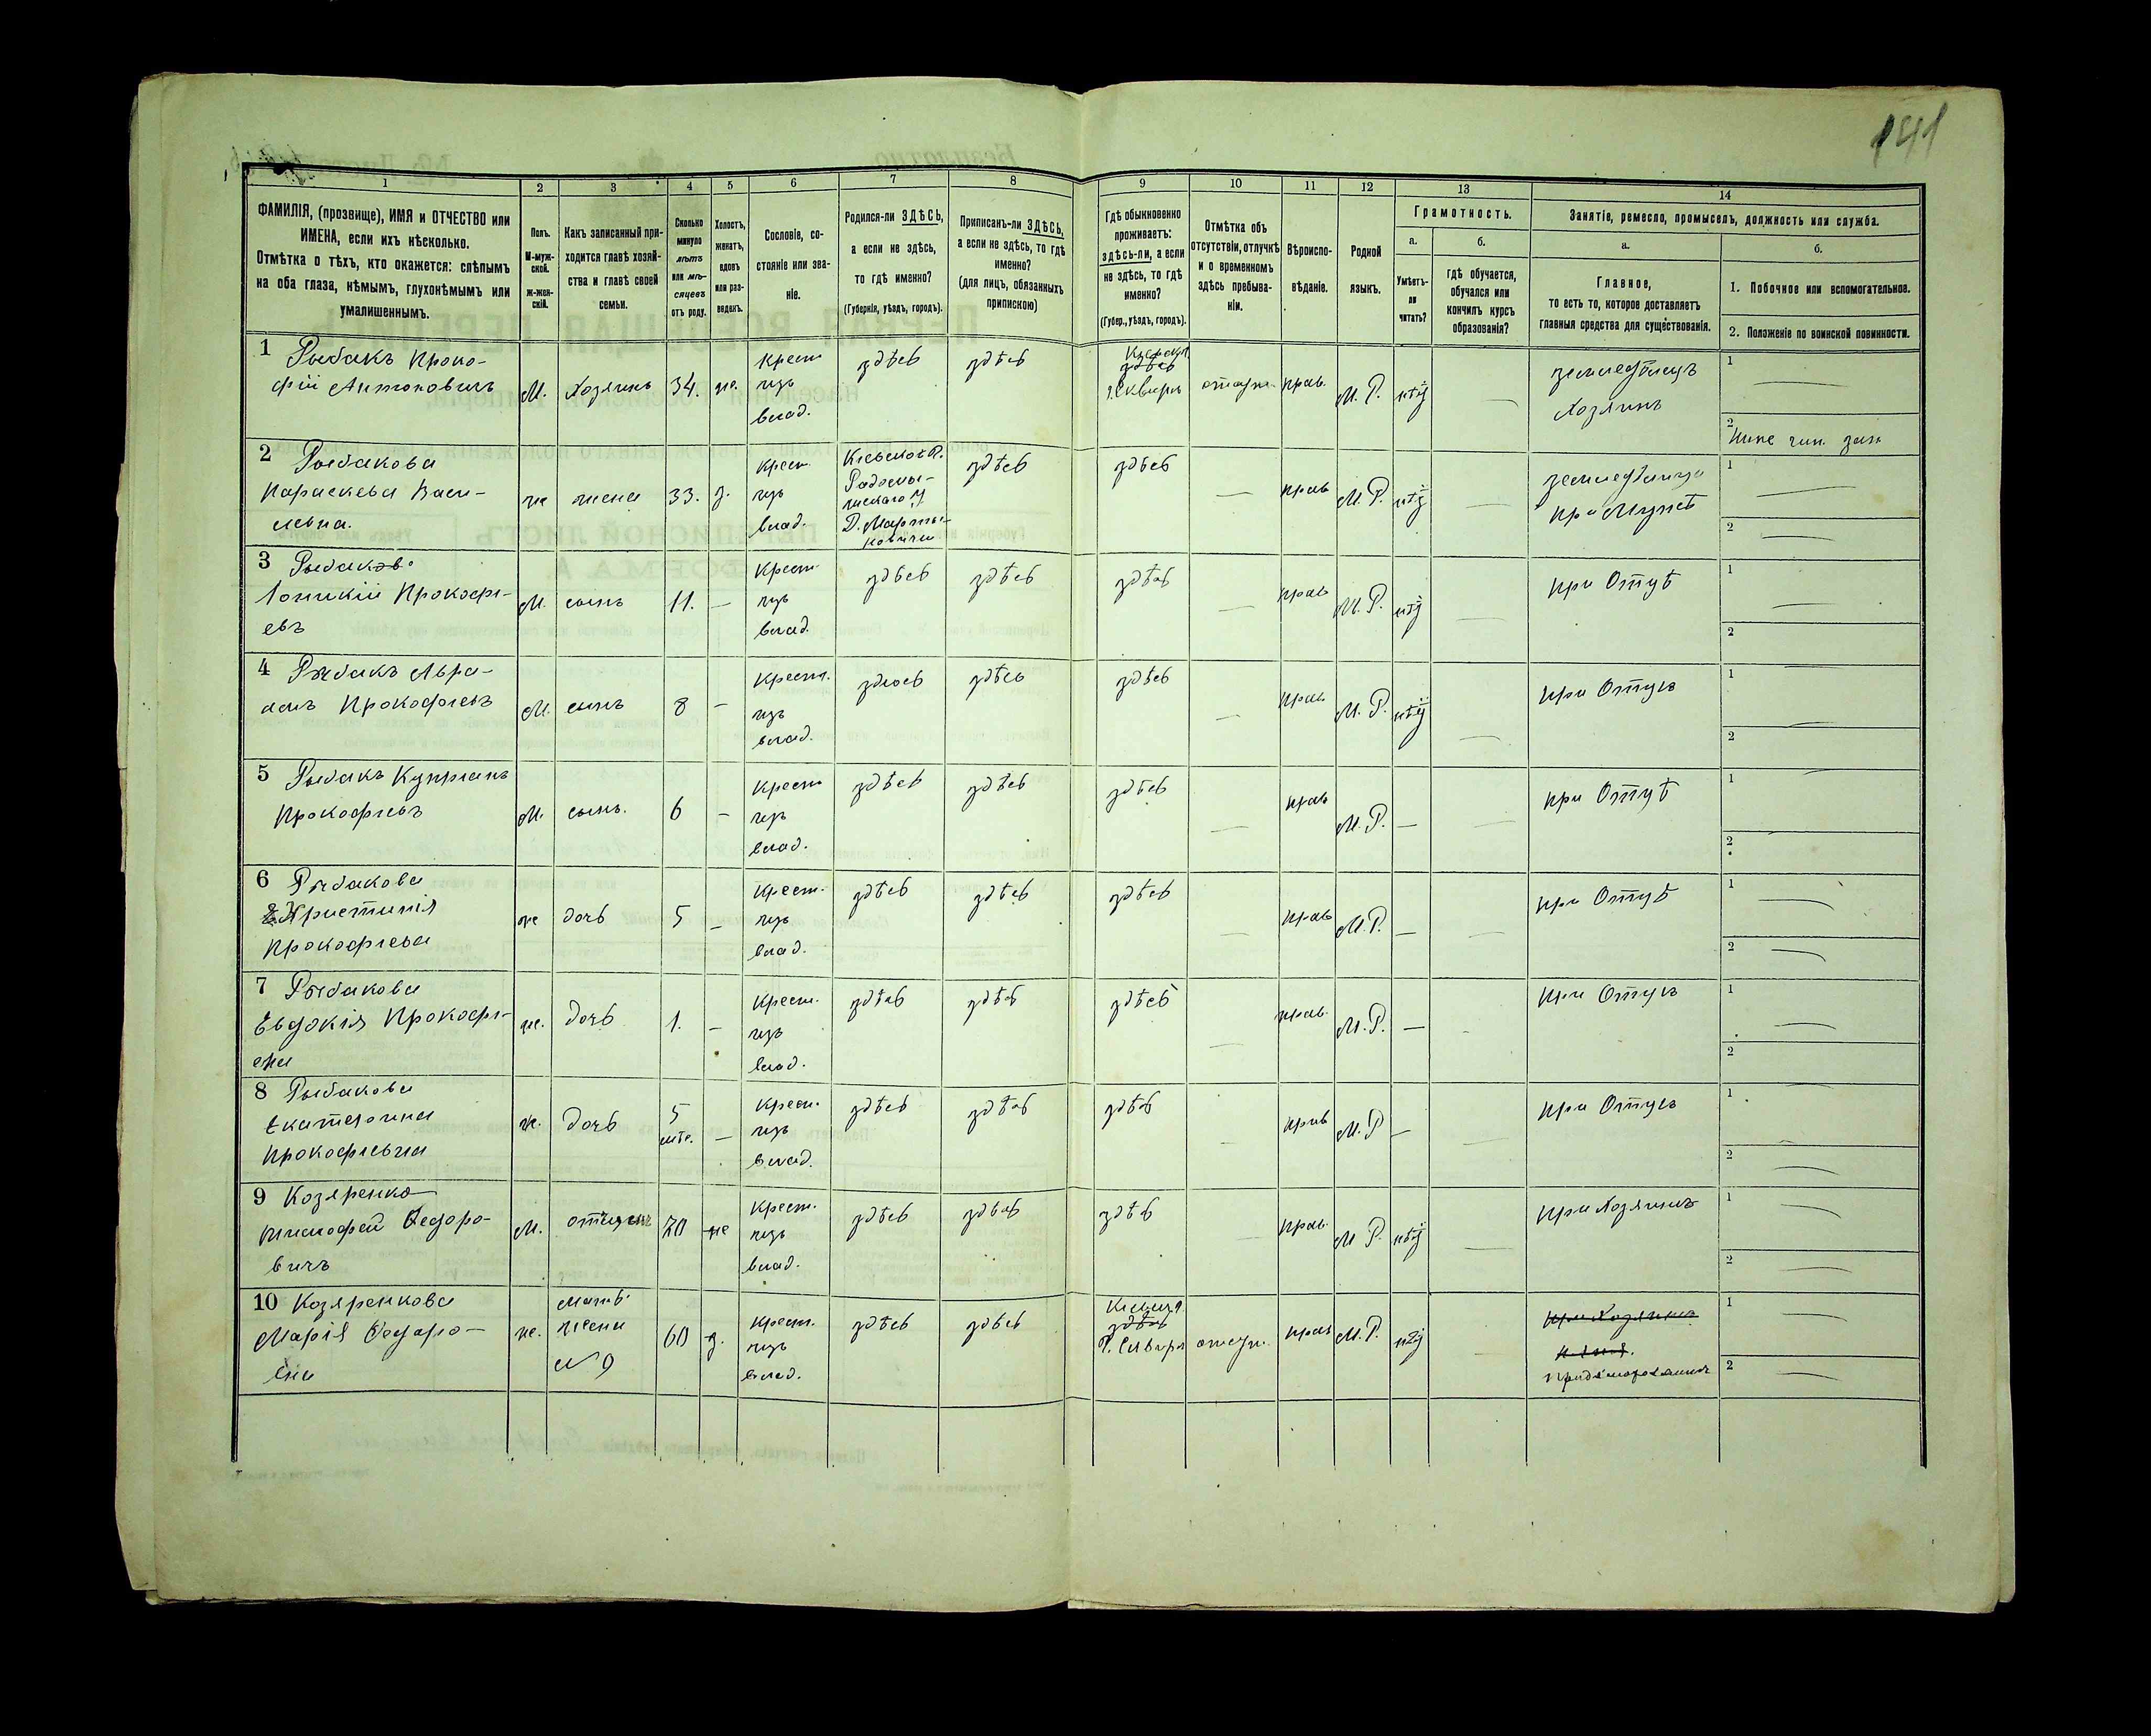 141
1
2
3
4
5
6
7
8
9
10
11
12
13
14
ФАМИЛІЯ, (прозвище), ИМЯ и ОТЧЕСТВО или
ИМЕНА, если ихъ нѣсколько.
Отмѣтка о тѣхъ, кто окажется: слѣпымъ
на оба глаза, нѣмымъ, глухонѣмымъ или
умалишеннымъ.
Полъ.
М-муж-
ской.
ж-жен-
скій.
Какъ записанный при-
ходится главѣ хозяй-
ства и главѣ своей
семьи.
Сколько
минуло
лѣтъ
или мѣ-
сяцевъ
отъ роду.
Холостъ,
женатъ,
вдовъ
или раз-
веденъ.
Сословіе, со-
стояніе или зва-
ніе.
Родился-ли ЗДѢСЬ,
а если не здѣсь,
то гдѣ именно?
(Губернія, уѣздъ, городъ).
Приписанъ-ли ЗДѢСЬ,
а если не здѣсь, то гдѣ
именно?
(для лицъ, обязанныхъ
припискою)
Гдѣ обыкновенно
проживаетъ:
здѣсь-ли, а если
не здѣсь, то гдѣ
именно?
(Губер., уѣздъ, городъ).
Отмѣтка объ
отсутствіи, отлучкѣ
и о временномъ
здѣсь пребыва-
ніи.
Вѣроиспо-
вѣданіе.
Родной
языкъ.
Грамотность.
а.
б.
Умѣетъ-
ли
читать?
гдѣ обучается,
обучался или
кончилъ курсъ
образованія?
Занятіе, ремесло, промыселъ, должность или служба.
а.
б.
Главное,
то есть то, которое доставляетъ
главныя средства для существованія.
1. Побочное или вспомогательное.
2. Положеніе по воинской повинности.
1 Рыбакъ Проко-
фій Антоновичъ
М. Хозяинъ 34. же.
крест.
изъ
влад.
здѣсь здѣсь
здѣсь
г. Сквира
прав. М. Р. нѣтъ
земледѣлецъ
Хозяинъ
1
2
2 Рыбакова
Параскева Васи-
льевна.
же жена 33. з.
крест.
изъ
влад.
Кіевской г.
Радомы-
У
Д. Марты-
новичи
здѣсь здѣсь — прав М. Р. нѣтъ —
при Мужѣ
1
2
3 Рыбаковъ
Прокофі-
евъ
М. сынъ 11. —
крест.
изъ
влад.
здѣсь здѣсь здѣсь — прав М. Р. нѣтъ — при Отцѣ
1
2
4 Рыбакъ Авра-
амъ Прокофіевъ
М. сынъ 8 —
крест.
изъ
влад.
здесь здѣсь здѣсь — прав М. Р. нѣтъ — при Отцѣ
1
2
5 Рыбакъ Купріанъ
Прокофіевъ
М. сынъ. 6 —
крест
изъ
влад.
здѣсь здѣсь здѣсь — прав М. Р. — — при Отцѣ
1
2
6 Рыбакова
Христинія
Прокофіева
же дочь 5 —
крест.
изъ
влад.
здѣсь здѣсь здѣсь — прав М. Р. — — при Отцѣ
1
2
7 Рыбакова
Евдокія Прокофі-
ева
же. дочь 1. —
крест.
изъ
влад.
здѣсь здѣсь здѣсь — прав. М. Р. — - при Отцѣ
1
2
8 Рыбакова
Екатерина
Прокофіевна
ж. дочь 5
мѣс. —
крест.
изъ
влад.
здѣсь здѣсь здѣсь - прав М. Р — — при Отцѣ
1
2
9 Козяренко
Тимофей Федоро-
вичъ
М. отчимъ 70 же
крест.
изъ
влад.
здѣсь здѣсь здѣсь — прав. М Р. нѣтъ — при Хозяинѣ
1
2
10 Козяренкова
Марія Федоро-
вна
же.
Мать
жены
№ 9
60 з.
крест.
изъ
влад.
здѣсь здѣсь
здѣсь
г. Сквира
прав М. Р. нѣтъ
при Хозяинѣ
1
2